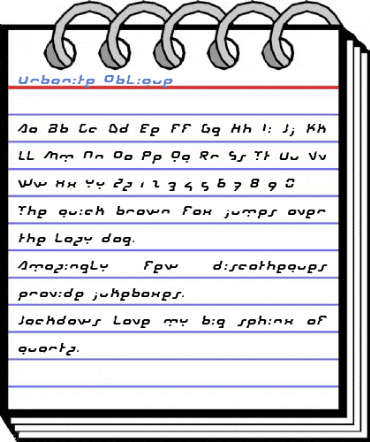 Urbanite Oblique
Aa Bb Cc Dd Ee Ff Gg Hh Ii Jj Kk
Ll Mm Nn Oo Pp Qq Rr Ss Tt Uu Vv
Ww Xx Yy Zz 1 2 3 4 5 6 7 8 9 0
The quick brown fox jumps over
the lazy dog.
Amazingly few discotheques
provide jukeboxes.
Jackdaws love my big sphinx of
quartz.